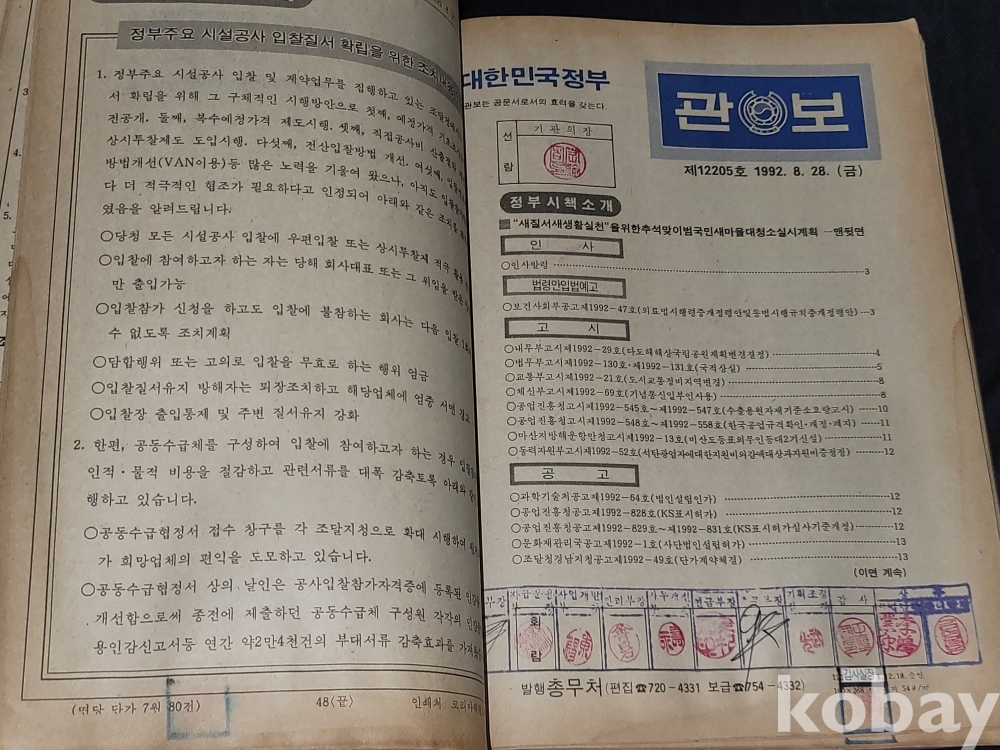 정부주요 시설공사 입찰질서 확립을 위한 조치내용
1. 정부주요 시설공사 입찰 및 계약업무를 집행하고 있는 조달청에서
서 확립을 위해 그 구체적인 시행방안으로 첫째, 예정가격 기초
전공개. 둘째, 복수예정가격 제도시행. 셋째, 직접공사비 산출
상시투찰제도 도입시행. 다섯째, 전산입찰방법 개선. 여섯째,
방법개선(VAN이용)등 많은 노력을 기울여 왔으나, 아직도
다 더 적극적인 협조가 필요하다고 인정되어 아래와 같은 조치를
였음을 알려드립니다.
○당청 모든 시설공사 입찰에 우편입찰 또는 상시투찰제 적극
○입찰에 참여하고자 하는 자는 당해 회사대표 또는 그 위임을 받은
만 출입가능
○입찰참가 신청을 하고도 입찰에 불참하는 회사는 다음 입찰
수 없도록 조치계획
○담합행위 또는 고의로 입찰을 무효로 하는 행위 엄금
○입찰질서유지 방해자는 퇴장조치하고 해당업체에 엄중 서면 경고
○입찰장 출입통제 및 주변 질서유지 강화
2. 한편, 공동수급체를 구성하여 입찰에 참여하고자 하는 경우
인적·물적 비용을 절감하고 관련서류를 대폭 감축토록 아래와
행하고 있습니다.
○공동수급협정서 접수 창구를 각 조달지청으로 확대 시행하여
가 희망업체의 편익을 도모하고 있습니다.
○공동수급협정서 상의 날인은 공사입찰참가자격증에 등록된
개선함으로써 종전에 제출하던 공동수급체 구성원 각각의
용인감신고서등 연간 약2만4천건의 부대서류 감축효과를
(면당 단가 7원 80전)
48〈끝〉
인쇄처
대한민국정부
관보는 공문서로서의 효력을 갖는다.
선
람
기관의장
관보
제12205호 1992. 8. 28. (금)
정부시책소개
■“새질서새생활실천”을위한추석맞이범국민새마을대청소실시계획 …맨뒷면
인 사
○인사발령 3
법령안입법예고
○보건사회부공고제1992-47호(의료법시행령중개정령안및동법시행규칙중개정령안) 3
고 시
○내무부고시제1992-29호(다도해해상국립공원계획변경결정) 4
○법무부고시제1992-130호·제1992-131호(국적상실) 5
○교통부고시제1992-21호(도시교통정비지역변경) 8
○체신부고시제1992-69호(기념통신일부인사용) 8
○공업진흥청고시제1992-545호~제1992-547호(수출용원자재기준소요량고시) 10
○공업진흥청고시제1992-548호~제1992-558호(한국공업규격확인·개정·폐지) 11
○마산지방해운항만청고시제1992-13호(비산도등표외무인등대2기신설) 11
○동력자원부고시제1992-52호(석탄광업자에대한지원비의감액대상과지원비중정정) 12
공 고
○과학기술처공고제1992-64호(법인설립인가) 12
○공업진흥청공고제1992-828호(KS표시허가) 12
○공업진흥청공고제1992-829호~제1992-831호(KS표시허가심사기준개정) 12
○문화재관리국공고제1992-1호(사단법인설립허가) 13
○조달청경남지청공고제1992-49호(단가계약체결) 13
(이면 계속)
회
람
관리부장
감 사
발행 총무처 (편집 ☎720-4331 보급 ☎754-4332)
감사실장
kobay